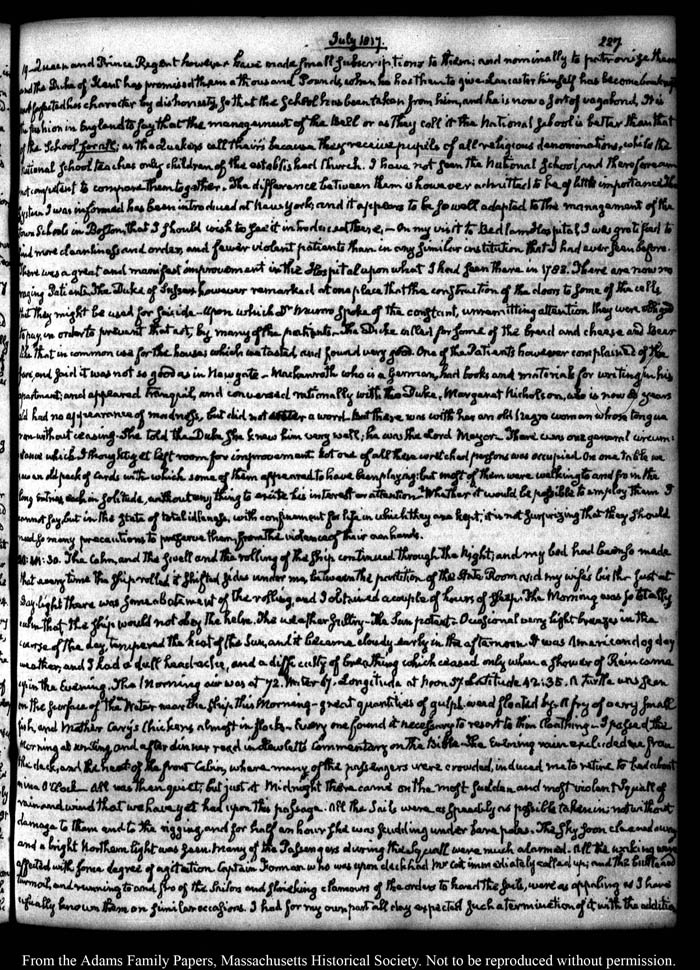 July 1817. 227
Queen and Prince Regent however have made small subscriptions to them; and nominally to patronize them
and the Duke of Kent has promised them a thousand Pounds, when he has them to give. Lancaster himself has become bankrupt
and forfeited his character by dishonesty, so that the School has been taken from him, and he is now a sort of vagabond. It is
the fashion in England to say that the management of the Bell or as they call it the National School is better than that
of the School for all; as the Quakers call theirs because they receive pupils of all religious denominations, while the
National School teaches only children of the established Church. I have not seen the National School, and therefore am
not competent to compare them together. The difference between them is however admitted to be of little importance. The
System I was informed has been introduced at New York, and it appears to be so well adapted to the management of the
Town Schools in Boston, that I should wish to see it introduced there. — On my visit to Bedlam Hospital, I was gratified to
find more cleanliness and order, and fewer violent patients than in any similar institution that I had ever seen before.
There was a great and manifest improvement in this Hospital upon what I had seen there in 1783. There are now no
raging Patients. The Duke of Sussex however remarked at one place that the construction of the doors to some of the cells
that they might be used for Suicide. Upon which Dr Munro spoke of the constant, unremitting attention they were obliged
to pay, in order to prevent that act, by many of the patients — The Duke called for some of the bread and cheese and Beer
like that in common use for the houses which we tasted, and found very good. One of the Patients however complained of the
and said it was not so good as in Newgate — Mackenroth who is a German, had books and materials for writing in his
apartment; and appeared tranquil, and conversed rationally with the Duke. Margaret Nicholson, who is now years
old had no appearance of madness, but did not utter a word. But there was with her an old Negro woman whose tongue
ran without ceasing. She told the Duke she knew him very well; he was the Lord Mayor. There was one general circum-
stance which I thought yet left room for improvement. Not one of all these wretched persons was occupied. On one Table we
saw an old pack of cards with which some of them appeared to have been playing: but most of them were walking to and fro in the
long entries, each in solitude, without any thing to excite his interest or attention. Whether it would be possible to employ them I
cannot say, but in the state of total idleness, with confinement for life in which they are kept, it is not surprizing that they should
need so many precautions to preserve them from the violence of their own hands.
30. The Calm, and the swell and the rolling of the Ship continued through the Night; and my bed had been so made
that every time the Ship rolled it shifted sides under me, between the partition of the State Room and my wife's birth. Just at
day-light there was some abatement of the rolling, and I obtained a couple of hours of sleep. The Morning was so totally
calm that the Ship would not obey the helm. The weather sultry — The Sun potent — Occasional very light breezes in the
course of the day, tempered the heat of the Sun, and it became cloudy early in the afternoon. It was American dog day
weather, and I had a dull head-ache, and a difficulty of breathing which ceased only when a shower of Rain came
up in the Evening. The Morning air was at 72. Water 67. Longitude at Noon 57 Latitude 42:35. A Turtle was seen
on the surface of the Water near the ship this Morning — great quantities of gulph-weed floated by. A fry of very small
fish, and Mother Cary's Chickens almost in flocks — Every one found it necessary to resort to thin cloathing — I passed the
Morning at writing, and after dinner read in Hewlett's Commentary on the Bible — The Evening rain excluded me from
the deck, and the heat of the front Cabin, where many of the passengers were crowded, induced me to retire to bed about
nine O'Clock — All was then quiet, but just at Midnight there came on the most sudden and most violent squall of
rain and wind that we have yet had upon this passage. All the Sails were as speedily as possible taken in; not without
damage to them and to the rigging, and for half an hour she was scudding under bare poles. The Sky soon cleared away
and a bright Northern light was seen. Many of the Passengers during this squall were much alarmed. All the were
affected with some degree of agitation. Captain Forman who was upon deck had Mr immediately called up; and the bustle and
turmoil, and running to and fro of the Sailors and shrieking clamours of the orders to hand the sails, were as appaling as I have
usually known them on similar occasions. I had for my own part all day expected such a termination of it with the addition
From the Adams Family Papers, Massachusetts Historical Society. Not to be reproduced without permission.